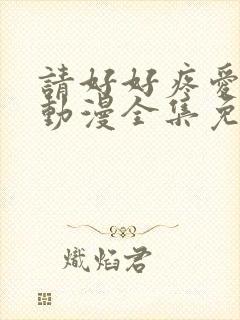 請好好疼愛
動漫全集免
熾焰君